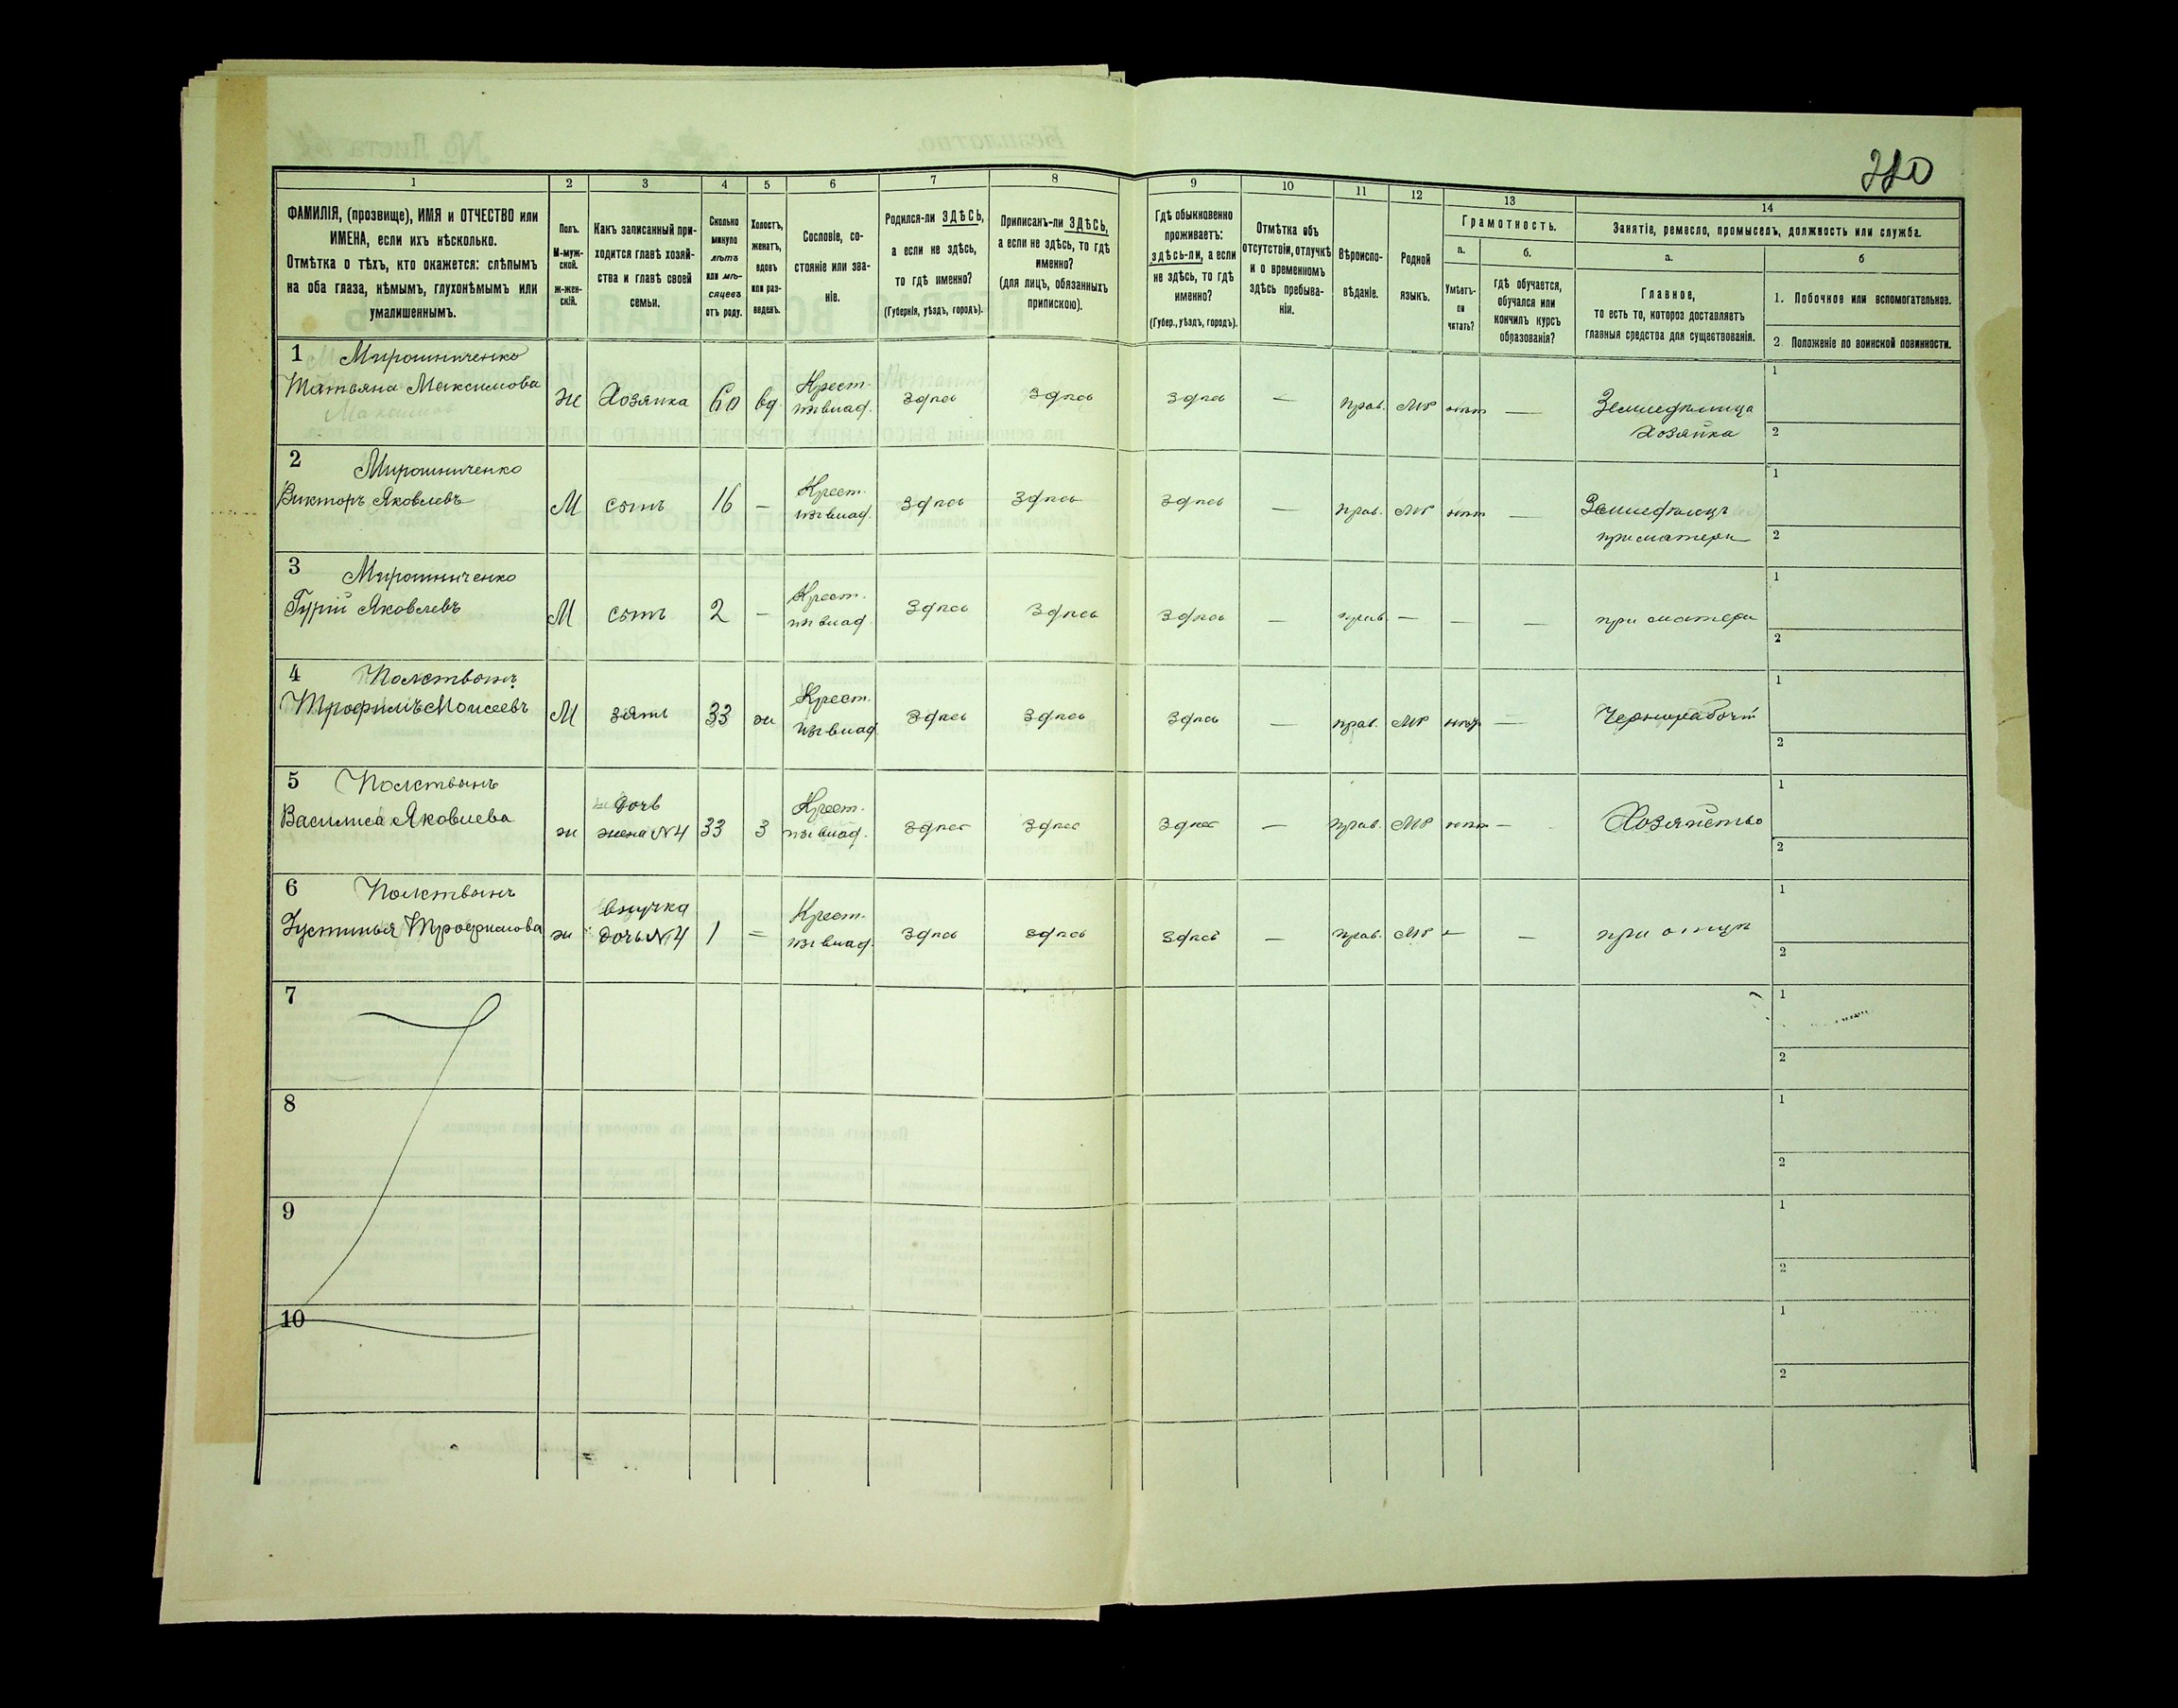 1
2
3
4
5
6
7
8
9
10
11
12
13
14
ФАМИЛІЯ, (прозвище), ИМЯ и ОТЧЕСТВО или
ИМЕНА, если ихъ нѣсколько.
Отмѣтка о тѣхъ, кто окажется: слѣпымъ
на оба глаза, нѣмымъ, глухонѣмымъ или
умалишеннымъ.
Полъ.
М-муж-
ской.
ж-жен-
скій.
Какъ записанный при-
ходится главѣ хозяй-
ства и главѣ своей
семьи.
Сколько
минуло
лѣтъ
или мѣ-
сяцевъ
отъ роду.
Холостъ,
женатъ,
вдовъ
или раз-
веденъ.
Сословіе, со-
стояніе или зва-
ніе.
Родился-ли ЗДѢСЬ,
а если не здѣсь,
то гдѣ именно?
(Губернія, уѣздъ, городъ).
Приписанъ-ли ЗДѢСЬ,
а если не здѣсь, то гдѣ
именно?
(для лицъ, обязанныхъ
припискою).
Гдѣ обыкновенно
проживаетъ:
здѣсь-ли, а если
не здѣсь, то гдѣ
именно?
(Губер., уѣздъ, городъ).
Отмѣтка объ
отсутствіи, отлучкѣ
и о временномъ
здѣсь пребыва-
ніи.
Вѣроиспо-
вѣданіе.
Родной
языкъ.
Грамотность.
а.
б.
Умѣетъ-
ли
читать?
гдѣ обучается,
обучался или
кончилъ курсъ
образованія?
Занятіе, ремесло, промыселъ, должность или служба.
а.
б
Главное,
то есть то, которое доставляетъ
главныя средства для существованія.
1. Побочное или вспомогательное.
2 Положеніе по воинской повинности.
1 Мирошниченко
Татьяна Максимова
ж Хозяйка 60 вд. Крест.
из влад. здѣсь здѣсь здѣсь — прав. МР нѣт —
Земледѣлица
Хозяйка
1
2
2 Мирошниченко
Викторъ Яковлевъ
М сынъ 16 — Крест.
из влад. здѣсь здѣсь здѣсь — прав. МР нѣт —
Земледѣлецъ
при матери
1
2
3 Мирошниченко
Гурій Яковлевъ
М сынъ 2 — Крест.
из влад. здѣсь здѣсь здѣсь — прав. — — —
при матери
1
2
4
Трофимъ Моисеевъ
М зять 33 ж Крест.
из влад. здѣсь здѣсь здѣсь — прав. МР нѣт —
Чернорабочій
1
2
5
Василиса Яковлева
ж дочь
жена №4 33 З Крест.
из влад. здѣсь здѣсь здѣсь — прав. МР нѣт —
Хозяйство
1
2
6
Устинья Трофимова
ж внучка
дочь №4 1 — Крест.
из влад. здѣсь здѣсь здѣсь — прав. МР — —
при отцѣ
1
2
7
1
2
8
1
2
9
1
2
10
1
2